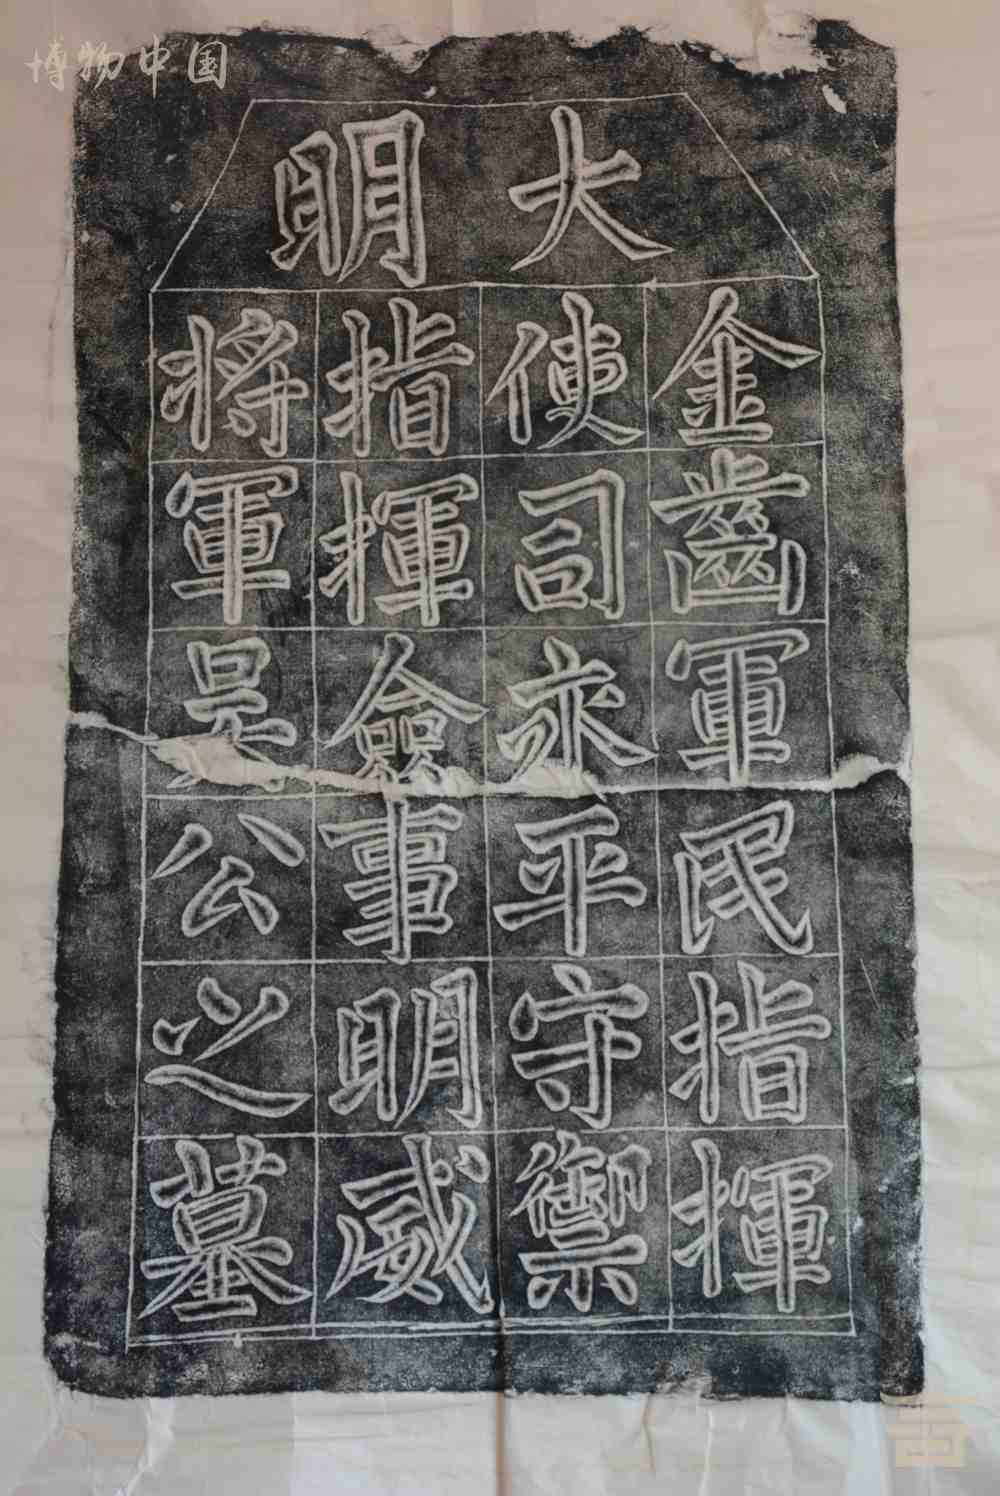 博物中国
大明
金齒軍民指揮
使司永平守禦
指揮僉事明威
將軍吴公之墓